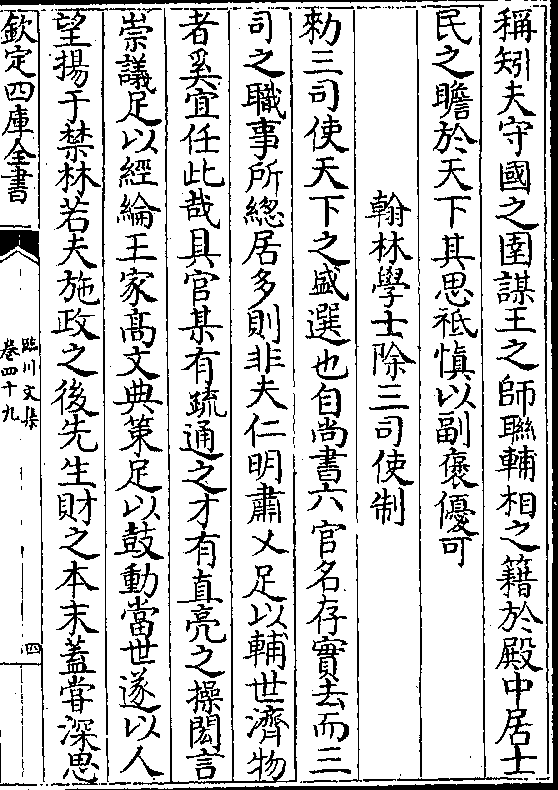 稱矧夫守國之圉謀王之師聯輔相之籍於殿中居士
民之瞻於天下其思祗慎以副褒優可
翰林學士除三司使制
勑三司使天下之盛選也自尚書六官名存實去而三
司之職事所緫居多則非夫仁明肅乂足以輔世濟物
者奚宜任此哉具官某有疏通之才有直亮之操閎言
崇議足以經綸王家髙文典策足以鼓動當世遂以人
望揚于禁林若夫施政之後先生財之本末蓋甞深思
欽定四庫全書
臨川文集
卷四十九
四